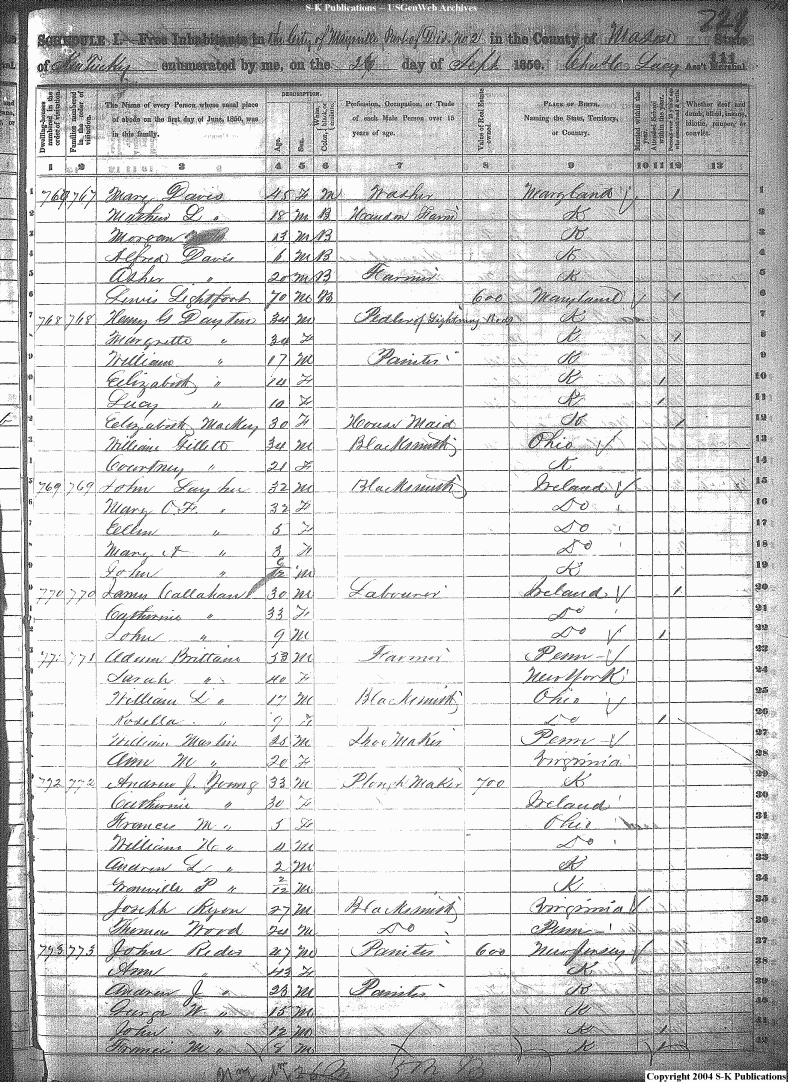 S-K Publications -- USGenWeb Archives
SCHEDULE I.—Free Inhabitants in the City of Maysville Part of Div. No 2 in the County of Mason State
of Kentucky enumerated by me, on the 26 day of Sept 1850. Lucy Ass't Marshal.
111
DESCRIPTION.
Dwelling-houses numbered in the order of visitation.
Families numbered in the order of visitation.
The Name of every Person whose usual place of abode on the first day of June, 1850, was in this family.
Age.
Sex.
Color, White, black, or mulatto.
Profession, Occupation, or Trade of each Male Person over 15 years of age.
Value of Real Estate owned.
PLACE OF BIRTH. Naming the State, Territory, or Country.
Married within the year.
Whether deaf and dumb, blind, insane, idiotic, pauper, or convict.
1 2 3 4 5 6 7 8 9 10 11 12 13
1 767 Mary Davis 45 F M Washer Maryland 1 1
2 18 M B K 2
3 Morgan 13 M B K 3
4 Alfred Davis 6 M B K 4
5 Asher " 20 M B Farmer K 5
6 Lewis Lightfoot 70 M B 600 Maryland 1 6
7 768 768 Henry G Dayton 34 M Pedler of Lightning Rods K 7
8 Margrette " 34 F K 1 8
9 William " 17 M Painter K 9
10 Elizabeth " 14 F K 1 10
11 Lucy " 10 F K 1 11
12 Elizabeth Mackey 30 F House Maid K 1 12
13 William Gillett 34 M Blacksmith Ohio 13
14 Courtney " 21 F K 14
15 769 769 John 32 M Blacksmith Ireland 15
16 Mary " 32 F Do 16
17 Ellen " 5 F Do 17
18 Mary A " 3 F Do 18
19 John " M K 19
20 770 770 James Callahan 30 M Labourer Ireland 1 20
21 Catherine " 33 F Do 21
22 John " 9 M Do 1 22
23 771 771 Adam Brittain 53 M Farmer Penn 23
24 Sarah " 40 F New York 24
25 William L " 17 M Blacksmith Ohio 25
26 Rosella " 9 F Do 1 26
27 William Martin 25 M Shoe Maker Penn 27
28 Ann M " 20 F Virginia 28
29 772 772 Andrew J. Young 33 M Plough Maker 700 K 29
30 Catherine " 30 F Ireland 30
31 Frances M " 5 F Ohio 31
32 William H " 4 M Do 32
33 Andrew L " 2 M K 33
34 Granville P " 2/12 M K 34
35 Joseph Ryon 27 M Blacksmith Virginia 35
36 Thomas Wood 24 M Do Penn 36
37 773 773 John Reder 47 M Painter 600 New Jersey 37
38 Ann " 43 F K 38
39 Andrew J " 23 M Painter K 39
40 George W " 15 M K 40
41 John " 12 M K 1 41
42 Francis M " 8 M K 1 42
Copyright 2004 S-K Publications